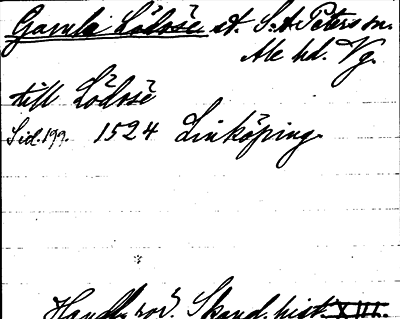 Gamla Lödöse st. S:t Peters sn.
Ale hd. Vg.
till Lödosé
Sid. 199. 1524 Linköping.
Handl. rör. Skand. hist. XIII.